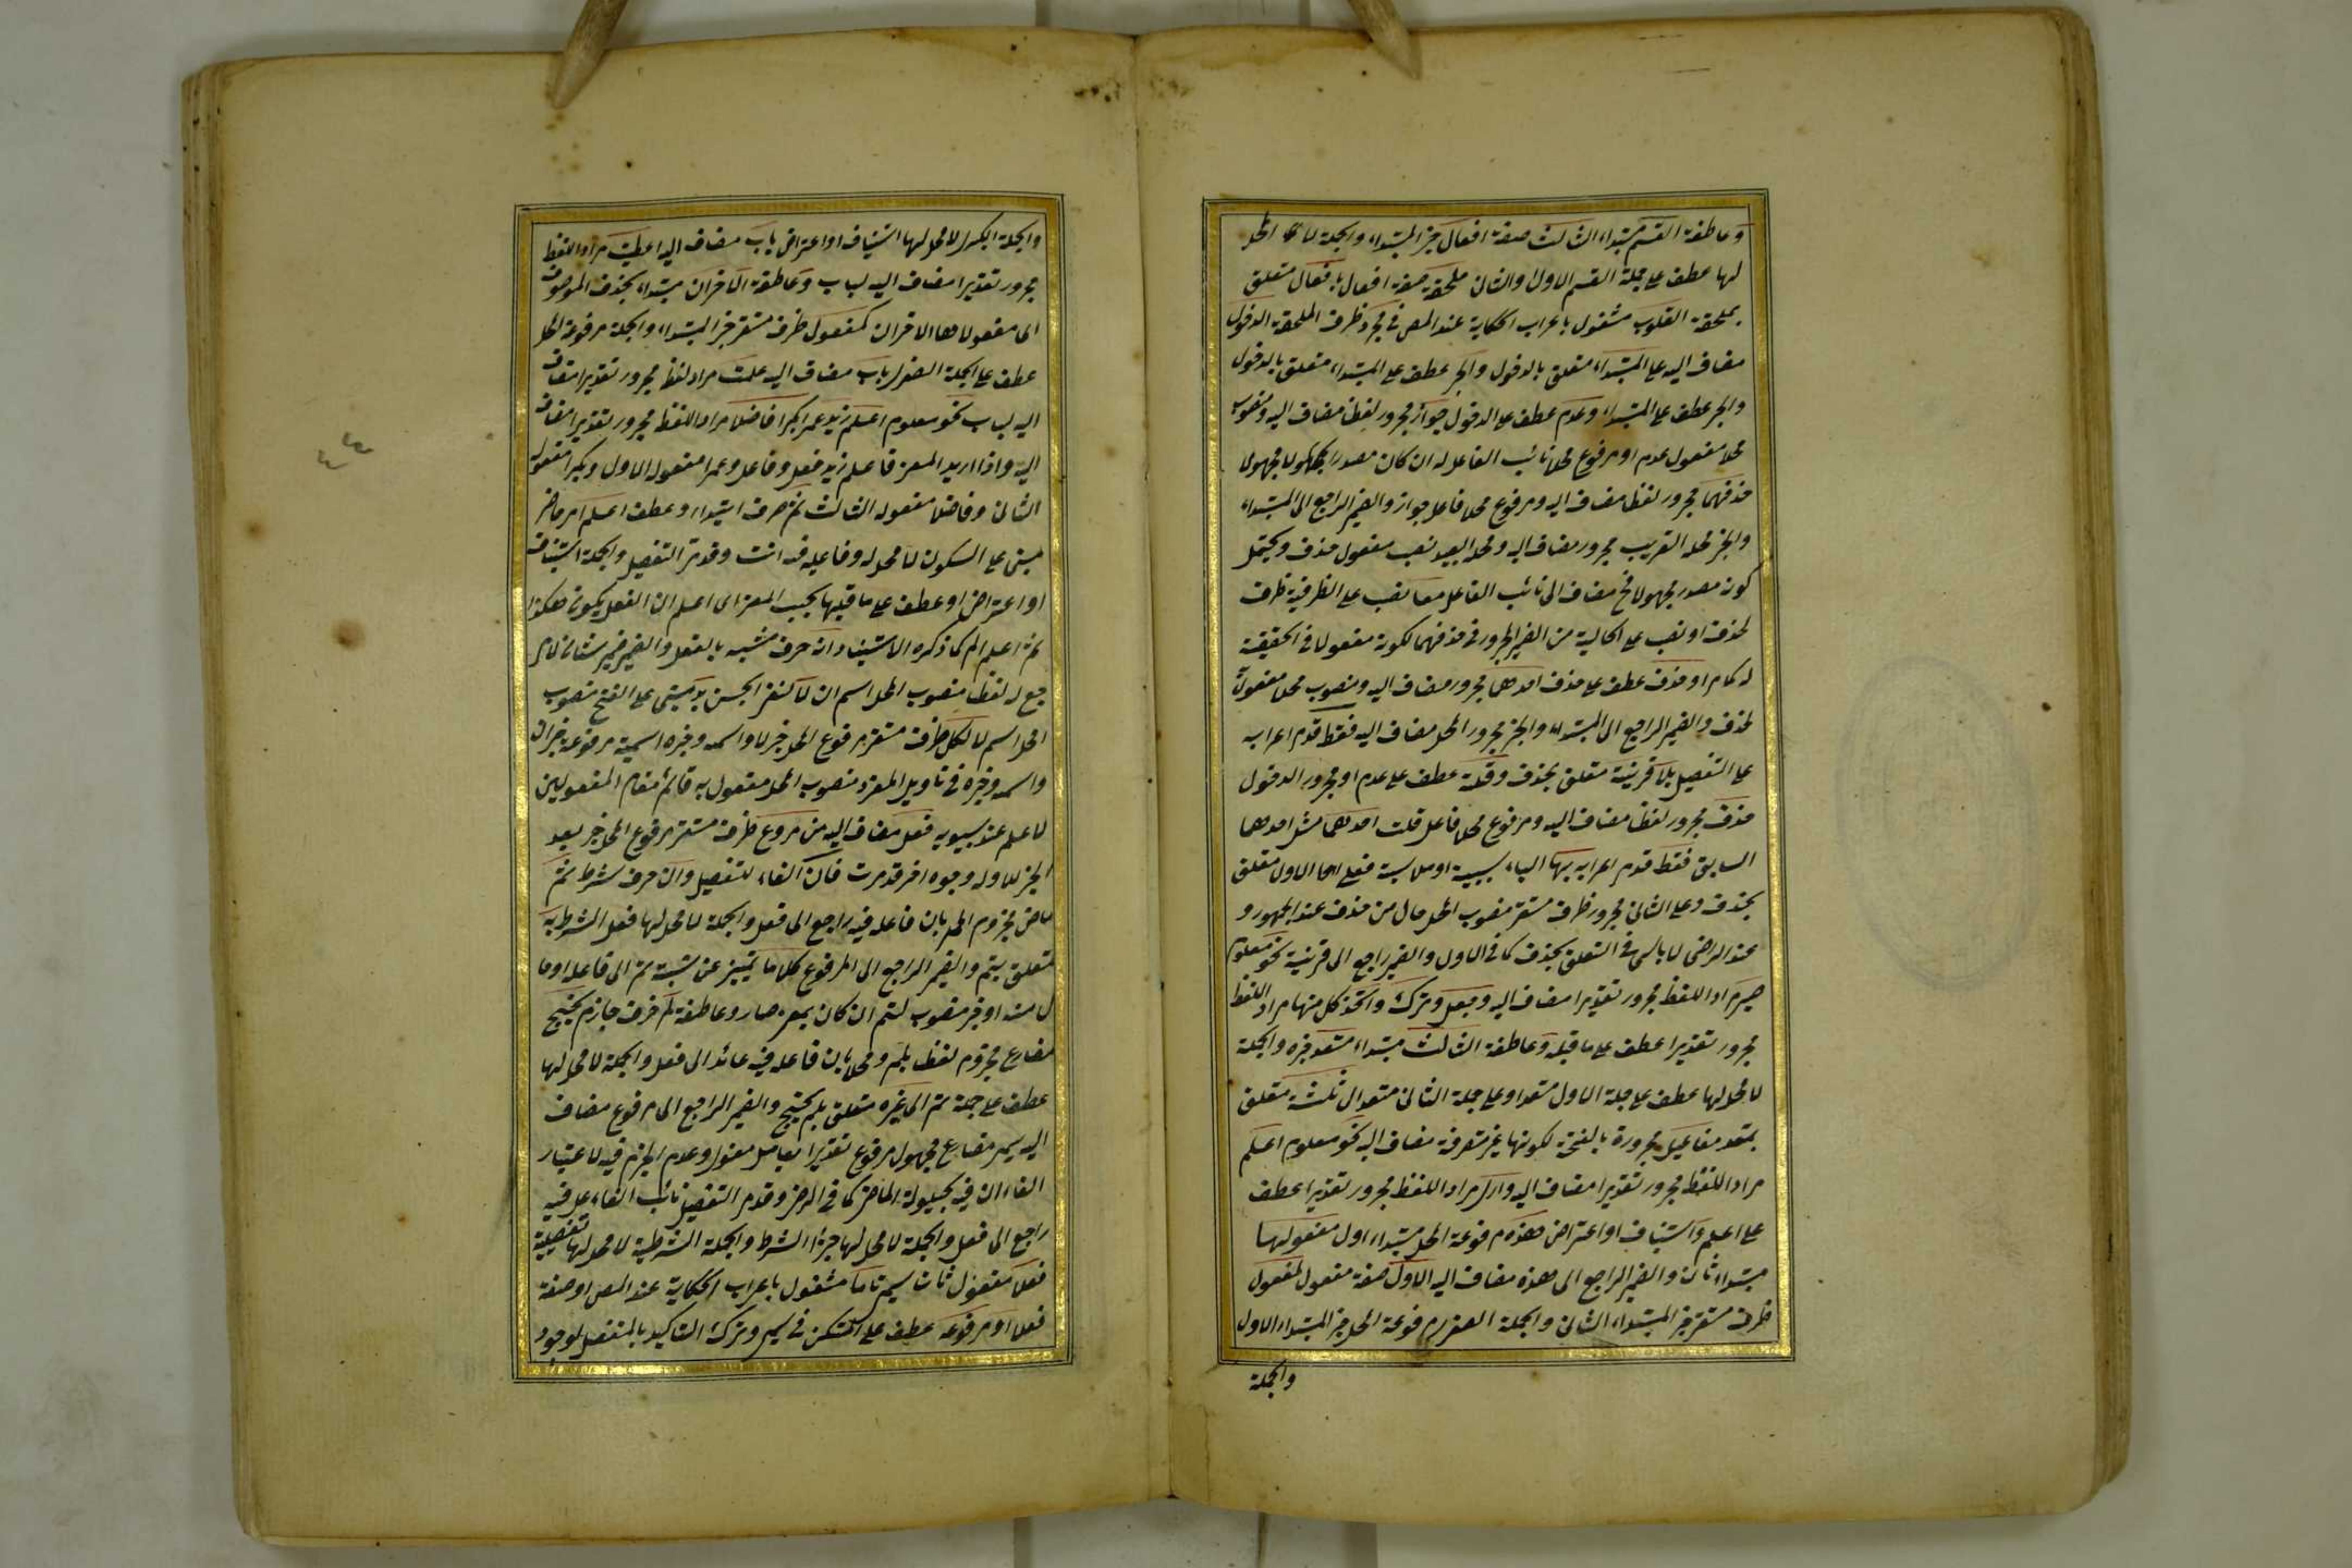 وعاطفة القسم مبتداء الثالث صفة افعال خبر المبتداء والجملة لا محل
لها عطف على جملة القسم الاول او الثانى ملحقة صفة افعال بافعال متعلق
بملحقة القلوب مشغول باعراب الحكاية عند المص فى مجرد ظرف الملحقة الدخول
مضاف اليه على المبتداء متعلق بالدخول والخبر عطف على المبتداء متعلق بالدخول
والخبر عطف على المبتداء وعدم عطف على الدخول جواز مجرور لفظا مضاف اليه ومنصوب
محلا مفعول عدم او مرفوع محلا نائب الفاعل له ان كان مصدرا مجهولا
حذفهما مجرور لفظا مضاف اليه ومرفوع محلا فاعل جواز والضمير الراجع الى المبتداء
والخبر محله القريب مجرور مضاف اليه ومحله البعيد نصب مفعول حذف ويحتمل
كونه مصدر مجهولا مضاف الى نائب الفاعل معا نصب على الظرفية ظرف
لحذف او نصب على الحالية من الضمير المجرور فى حذفهما لكونه مفعولا فى الحقيقة
كما مر او حذف عطف على حذف احدهما مجرور مضاف اليه ومنصوب محلا مفعول
لحذف والضمير الراجع الى المبتداء والخبر مجرور المحل مضاف اليه فقط قدم اعرابه
على التفصيل بلا قرينة متعلق بحذف وقلة عطف على عدم او مجرور الدخول
حذف مجرور لفظا مضاف اليه ومرفوع محلا فاعل قلت احدهما مثل احدهما
السابق فقط قدم اعرابه بها الباء سببية او ملابسة فعلى الاول متعلق
بحذف وعلى الثانى مجرور ظرف مستقر منصوب المحل حال من حذف عند الجمهور و
عند الرضى لا باس فى التعلق بحذف كما فى الاول والضمير راجع الى قرينة نحو معلوم
صير مراد اللفظ مجرور تقديرا مضاف اليه وجعل وترك واتخذ كل منها مراد اللفظ
مجرور تقديرا عطف على ما قبله وعاطفة الثالث مبتداء متعد خبره والجملة
لا محل لها عطف على جملة الاول متعد او على جملة الثانى متعد الى ثلثة متعلق
بمتعد مفاعيل مجرورة بالفتحة لكونها غير متصرفة مضاف اليه نحو معلوم اعلم
مراد اللفظ مجرور تقديرا مضاف اليه وارى مراد اللفظ مجرور تقديرا عطف
على اعلم واستيناف او اعتراض هذه مرفوعة المحل مبتداء اول مفعولها
مبتداء ثان والضمير الراجع الى هذه مضاف اليه الاول صفة مفعول كمفعول
ظرف مستقر خبر المبتداء الثانى والجملة الصغرى مرفوعة المحل خبر المبتداء الاول
والجملة
والجملة الكبرى لا محل لها استيناف او اعتراض باب مضاف اليه اعطيت مراد اللفظ
مجرور تقديرا مضاف اليه لباب وعاطفة الاخران مبتداء بحذف الموصوف
اى مفعولاها الاخران كمفعولى ظرف مستقر خبر المبتداء والجملة مرفوعة المحل
عطف على الجملة الصغرى باب مضاف اليه علمت مراد لفظ مجرور تقديرا مضاف
اليه لباب نحو معلوم اعلم زيد عمرا بكرا فاضلا مراد اللفظ مجرور تقديرا مضاف
اليه واذا اريد المعنى فاعلم زيد فعل وفاعل وعمرا مفعوله الاول وبكرا مفعوله
الثانى وفاضلا مفعوله الثالث ثم حرف ابتداء وعطف اعلم امر حاضر
مبنى على السكون لا محل له وفاعله فيه انت وقد مر التفصيل والجملة استيناف
او اعتراض او عطف على ما قبلها بحسب المعنى اى اعلم ان الفعل يكون هكذا
ثم اعلم الم كما ذكره الاستيناد انه حرف مشبه بالفعل والضمير ضمير شان لا مر
جع له لفظا منصوب المحل اسم ان لا لنفى الجنس بد مبنى على الفتح منصوب
المحل اسم لا لكل ظرف مستقر مرفوع المحل خبر لا واسمه وخبره اسمية مرفوعة خبر ان
واسمه وخبره فى تاويل المفرد منصوب المحل مفعول به قائم مقام المفعولين
لاعلم عند سيبويه فعل مضاف اليه من مرفوع ظرف مستقر مرفوع المحل خبر بعد
الخبر للاوله وجوه اخر قد مرت فان الفاء للتفصيل وان حرف شرط تم
ماض مجزوم المحل بان فاعله فيه راجع الى فعل والجملة لا محل لها فعل الشرط به
متعلق بتم والضمير الراجع الى المرفوع كلاما تمييز عن نسبة تم الى فاعله او حا
ل منه او خبر منصوب لتم ان كان بمعنى صار وعاطفة لم حرف جازم يحتج
مضارع مجزوم لفظا بلم ومحلا بان فاعله فيه عائد الى فعل والجملة لا محل لها
عطف على جملة تم الى غيره متعلق بلم يحتج والضمير الراجع الى مرفوع مضاف
اليه يسمى مضارع مجهول مرفوع تقديرا بعامل معنوى وعدم الجزم فيه لاعتبار
الفاء ان فيه لحيلولة الماضى كما فى الرضى وقد مر التفصيل نائب الفاعل فيه
راجع الى فعل والجملة لا محل لها جزاء الشرط والجملة الشرطية لا محل لها تفصيلية
فعلا مفعول ثان يسمى تاما مشغول باعراب الحكاية عند المص او صفة
فعلا او مرفوعه عطف على المستكن فى يسمى وترك التاكيد بالمنفصل لوجود